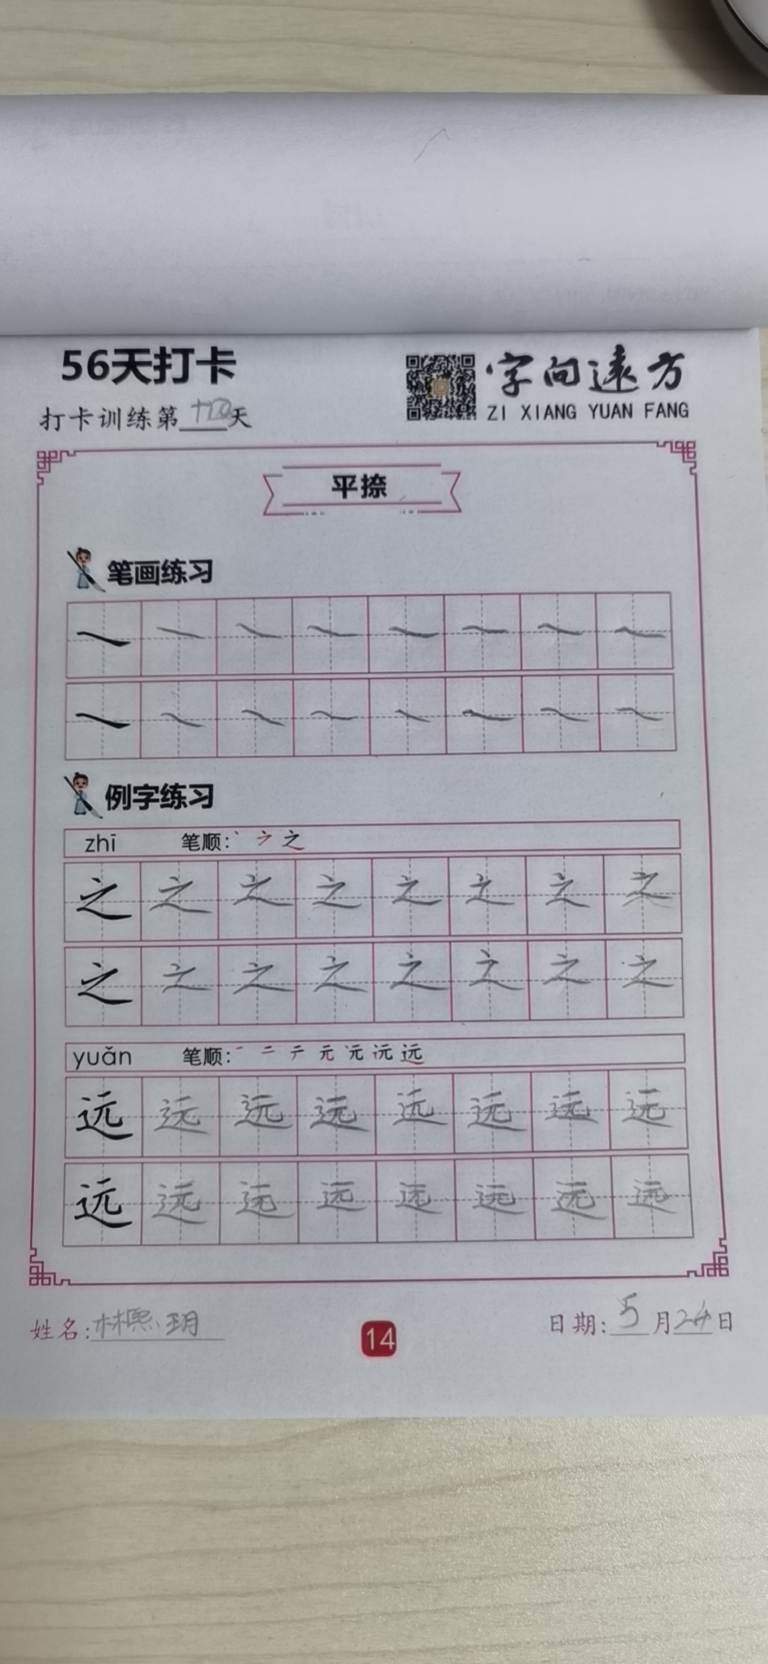 56天打卡
字向远方
ZI XIANG YUAN FANG
打卡训练第十四天
平捺
笔画练习
例字练习
zhī 笔顺: 丶 ㇇ 之
之 之 之 之 之 之 之 之
之 之 之 之 之 之 之 之
yuǎn 笔顺: 一 二 テ 元 元 沅 远
远 远 远 远 远 远 远 远
远 远 远 远 远 远 远 远
姓名: 林熙玥
14
日期: 5月24日